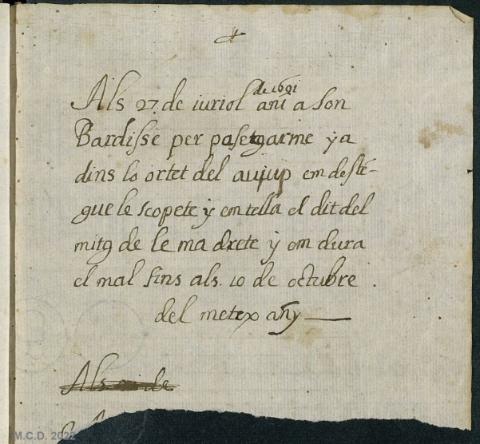 Als 27 de iuriol de 1691 añi a son
Bardisse per pasetgarme y a
dins lo ortet del aujup em desté-
gue le scopete y em tella el dit del
mitg de le ma drete y em dura
el mal fins als. 10 de octubre
del metex añy
Als
M.C.D. 2022